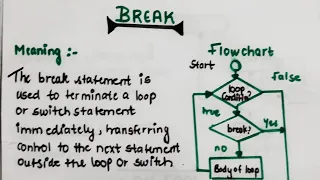 BREAK
Meaning :-
The break statement is
used to terminate a loop
or switch statement
immediately, transferring
control to the next statement
outside the loop or switch
Flowchart
Start
loop
condition?
False
true
break?
Yes
no
Body of loop